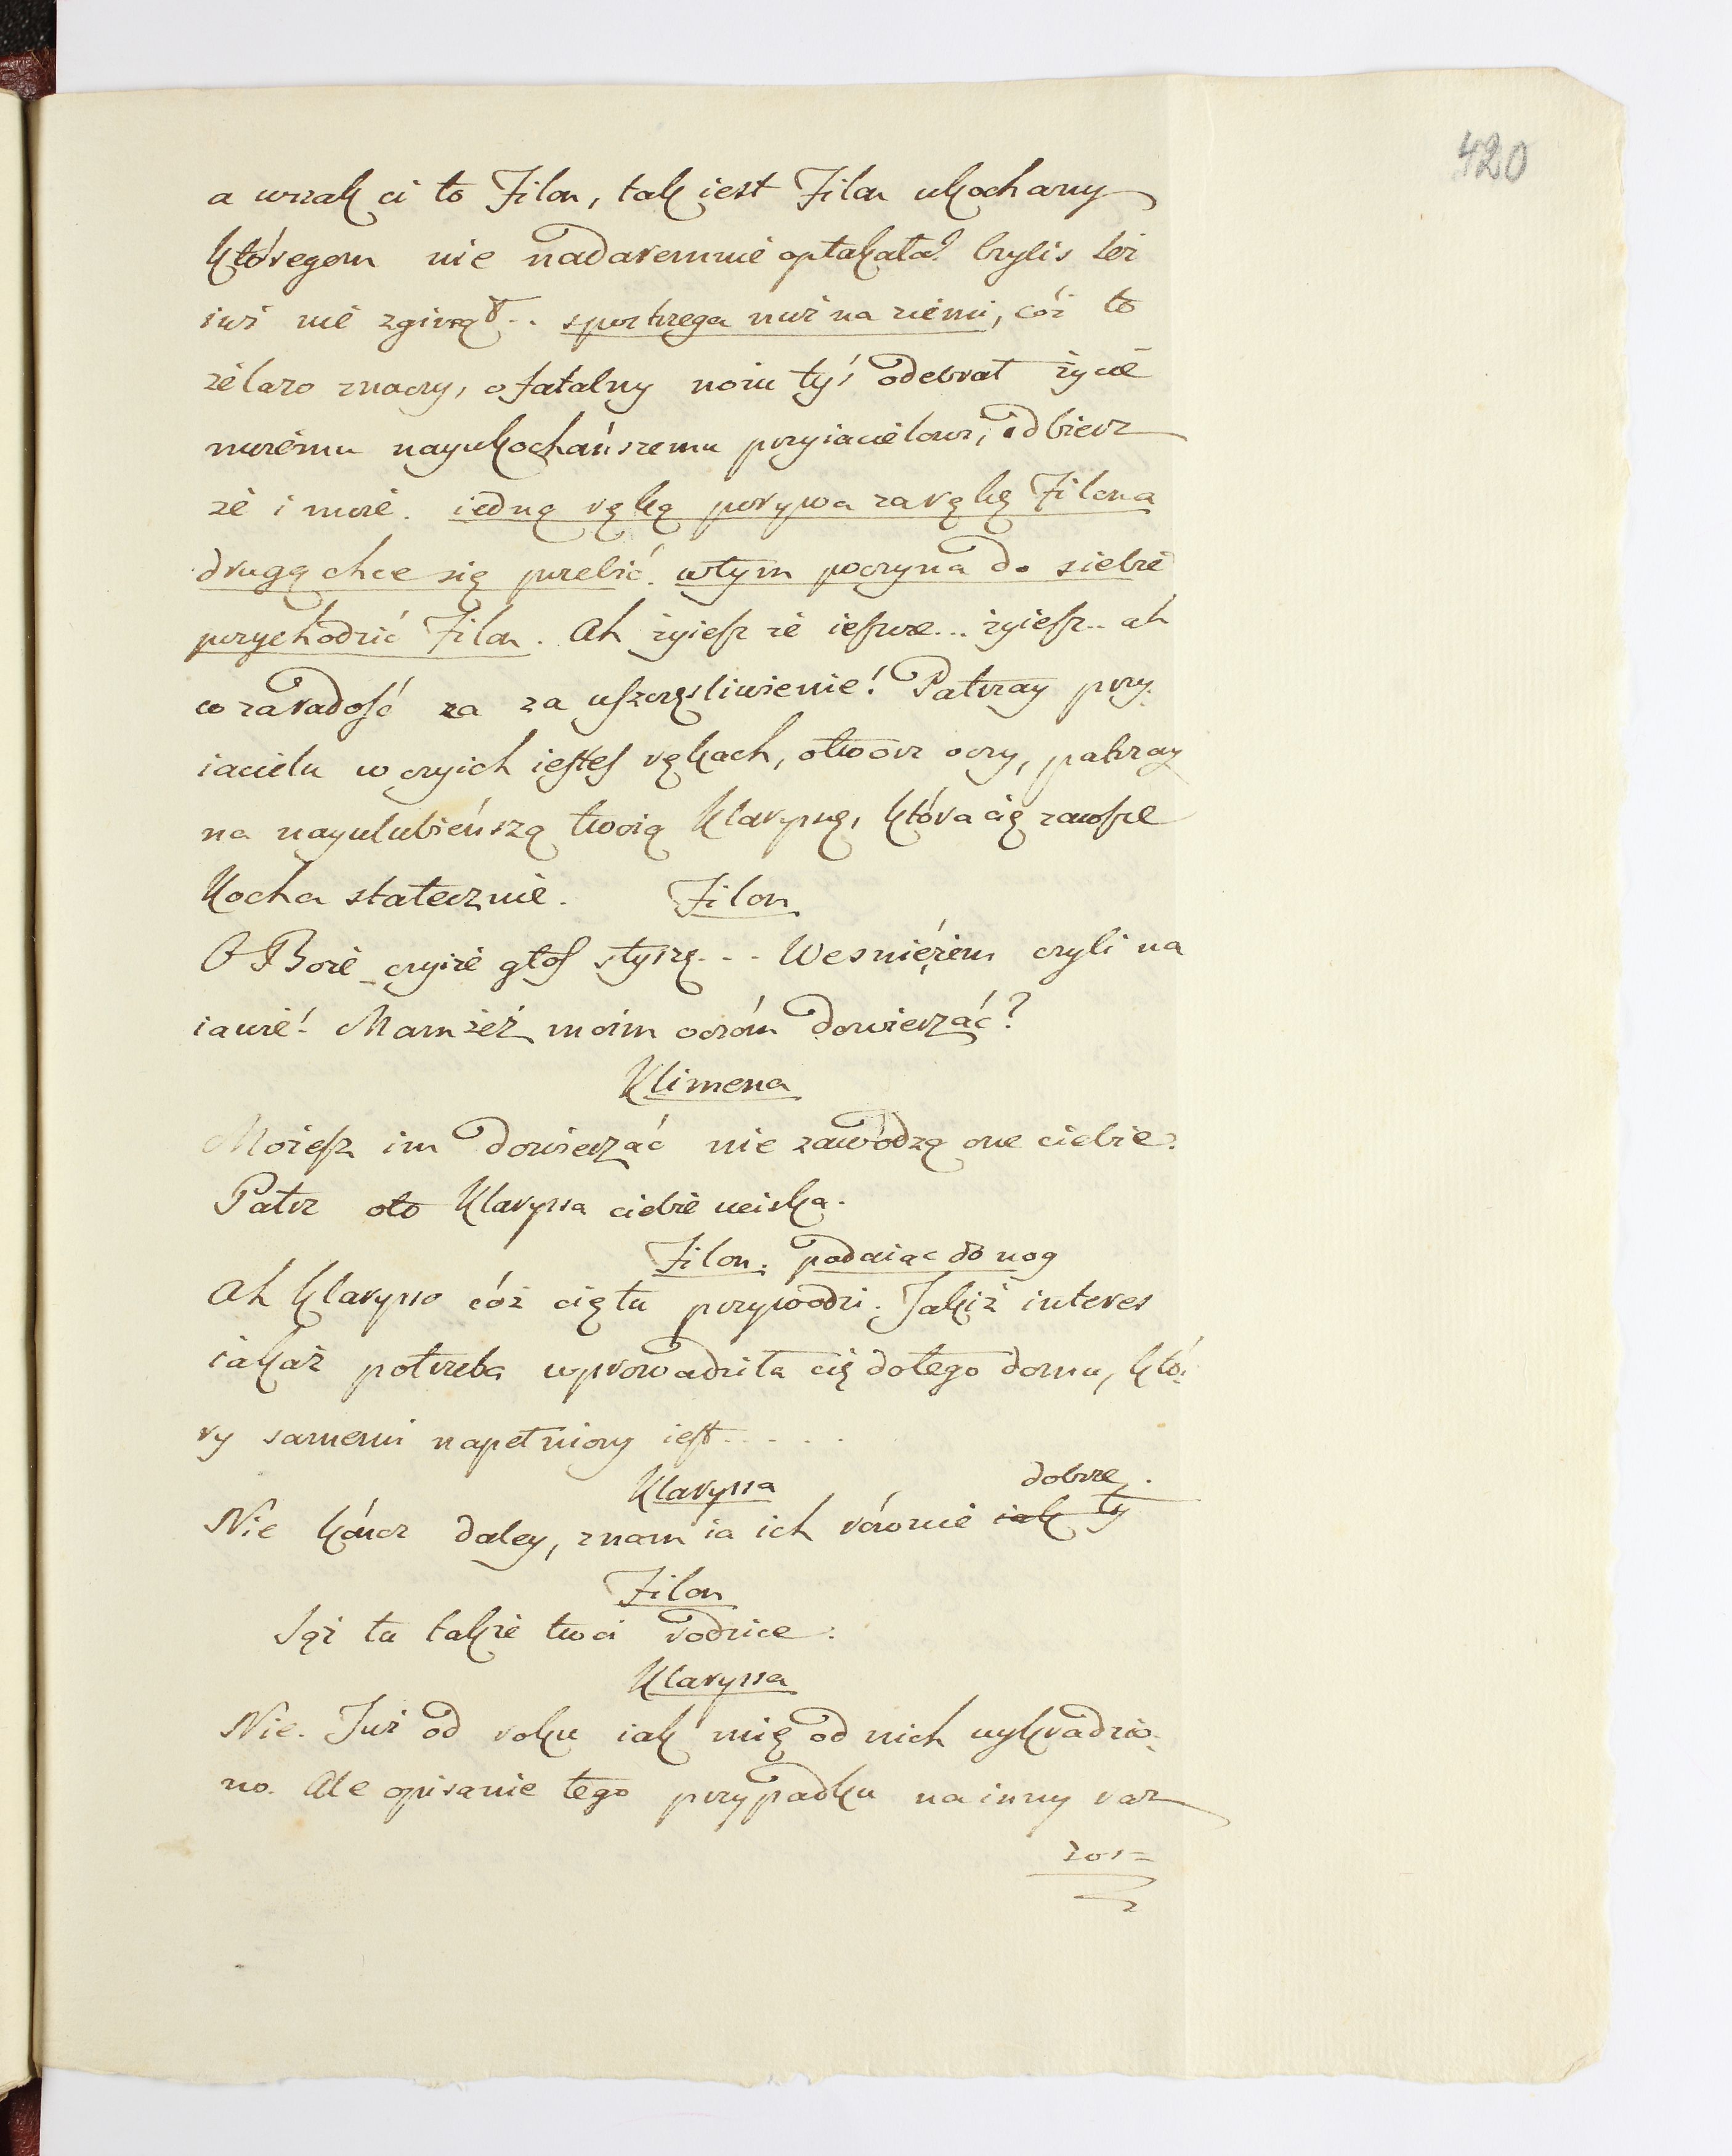 420
a wszak ci to Filon, tak iest Filon ukochany
któregom nie nadaremnie opłakała? Czyliś też
iuż nie zginął... spostrzega nuż na ziemi, cóż to
żelazo znaczy, o fatalny nożu tyś odebrał życie
memu nayukochańszemu przyiacielowi, odbierz
że i moie. iedną ręką porywa za rękę Filona
drugą chce się przebić. wtym poczyna do siebie
przychodzić Filon. Ah żyiesz że ieszcze... żyiesz.. ah
co za radość za za uszczęsliwienie! Patrzay przy-
iacielu w czyich iesteś rękach, otwórz oczy, patrzay
na nayulubieńszą twoią Klaryssę, która cię zawsze
Kocha statecznie. Filon
O Boże czyiże głos słyszę... We snieżem czyli na
iawie! Mamżeż moim oczóm dowierzać?
Klimena
Możesz im dowierzać nie zawodzą one ciebie.
Patrz oto Klaryssa ciebie uciska.
Filon. padaiąc do nog
Ah Klarysso cóż cię tu przywodzi. Jakiż interes
iakaż potrzeba wprowadziła cię do tego domu, któ-
ry samemi napełniony iest.....
Klaryssa dobrze.
Nie kończ daley, znam ia ich równie iak ty
Filon
Sąż tu także twoi rodzice.
Klaryssa
Nie. Już od roku iak mię od nich wykradzio-
no. Ale opisanie tego przypadku na inny raz
zos=